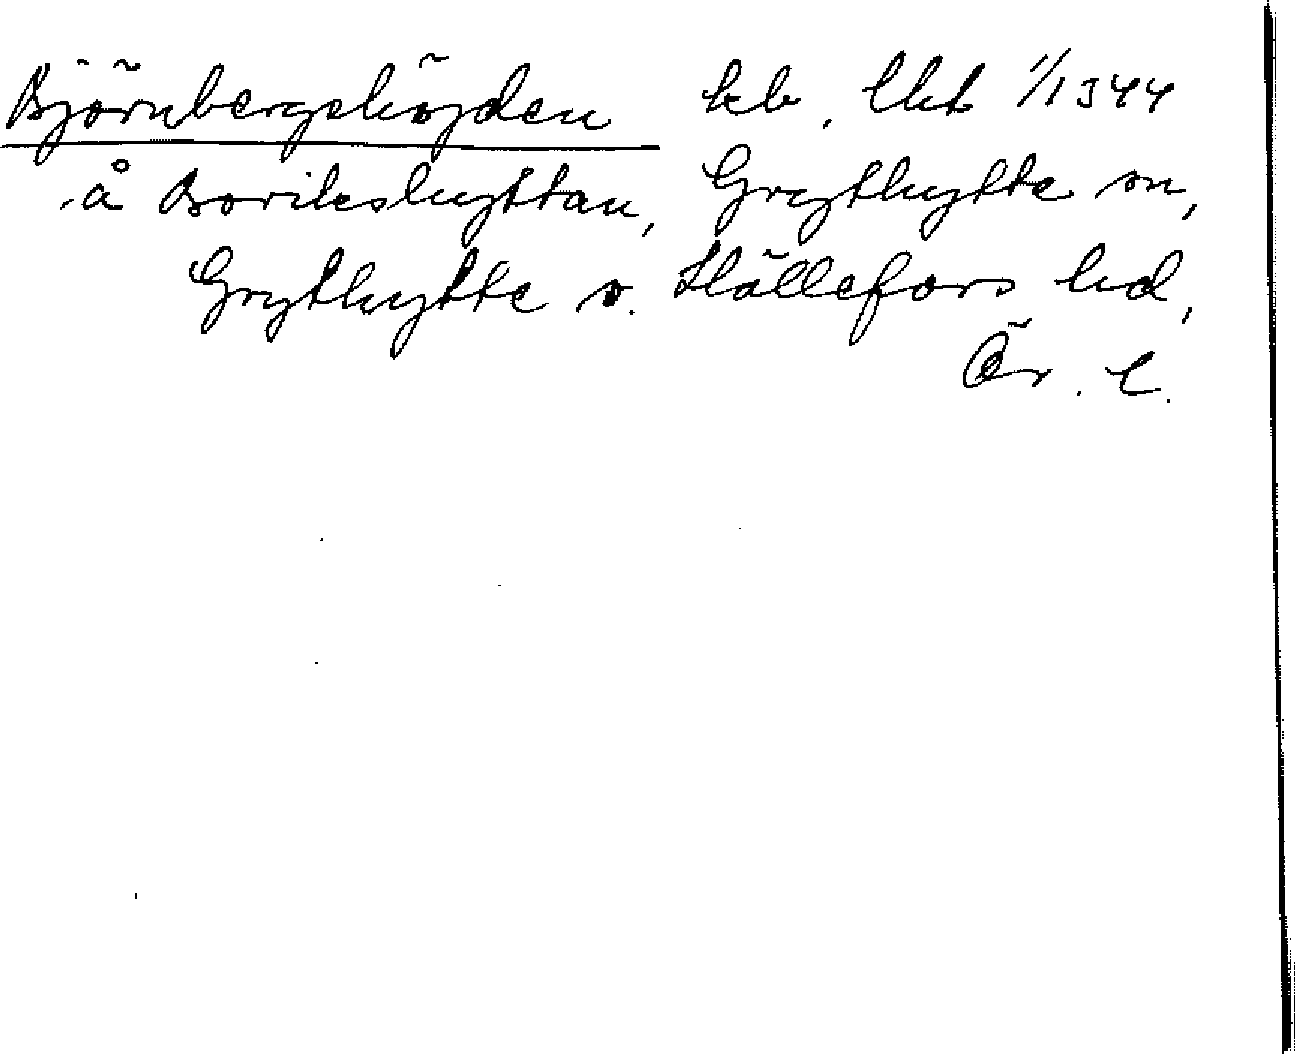 Björnbergshöjden lkb, lht 1/1 1944
å Borikshyttan, Grythytte sn,
Grythytte o. Hällefors hd,
Ör. l.